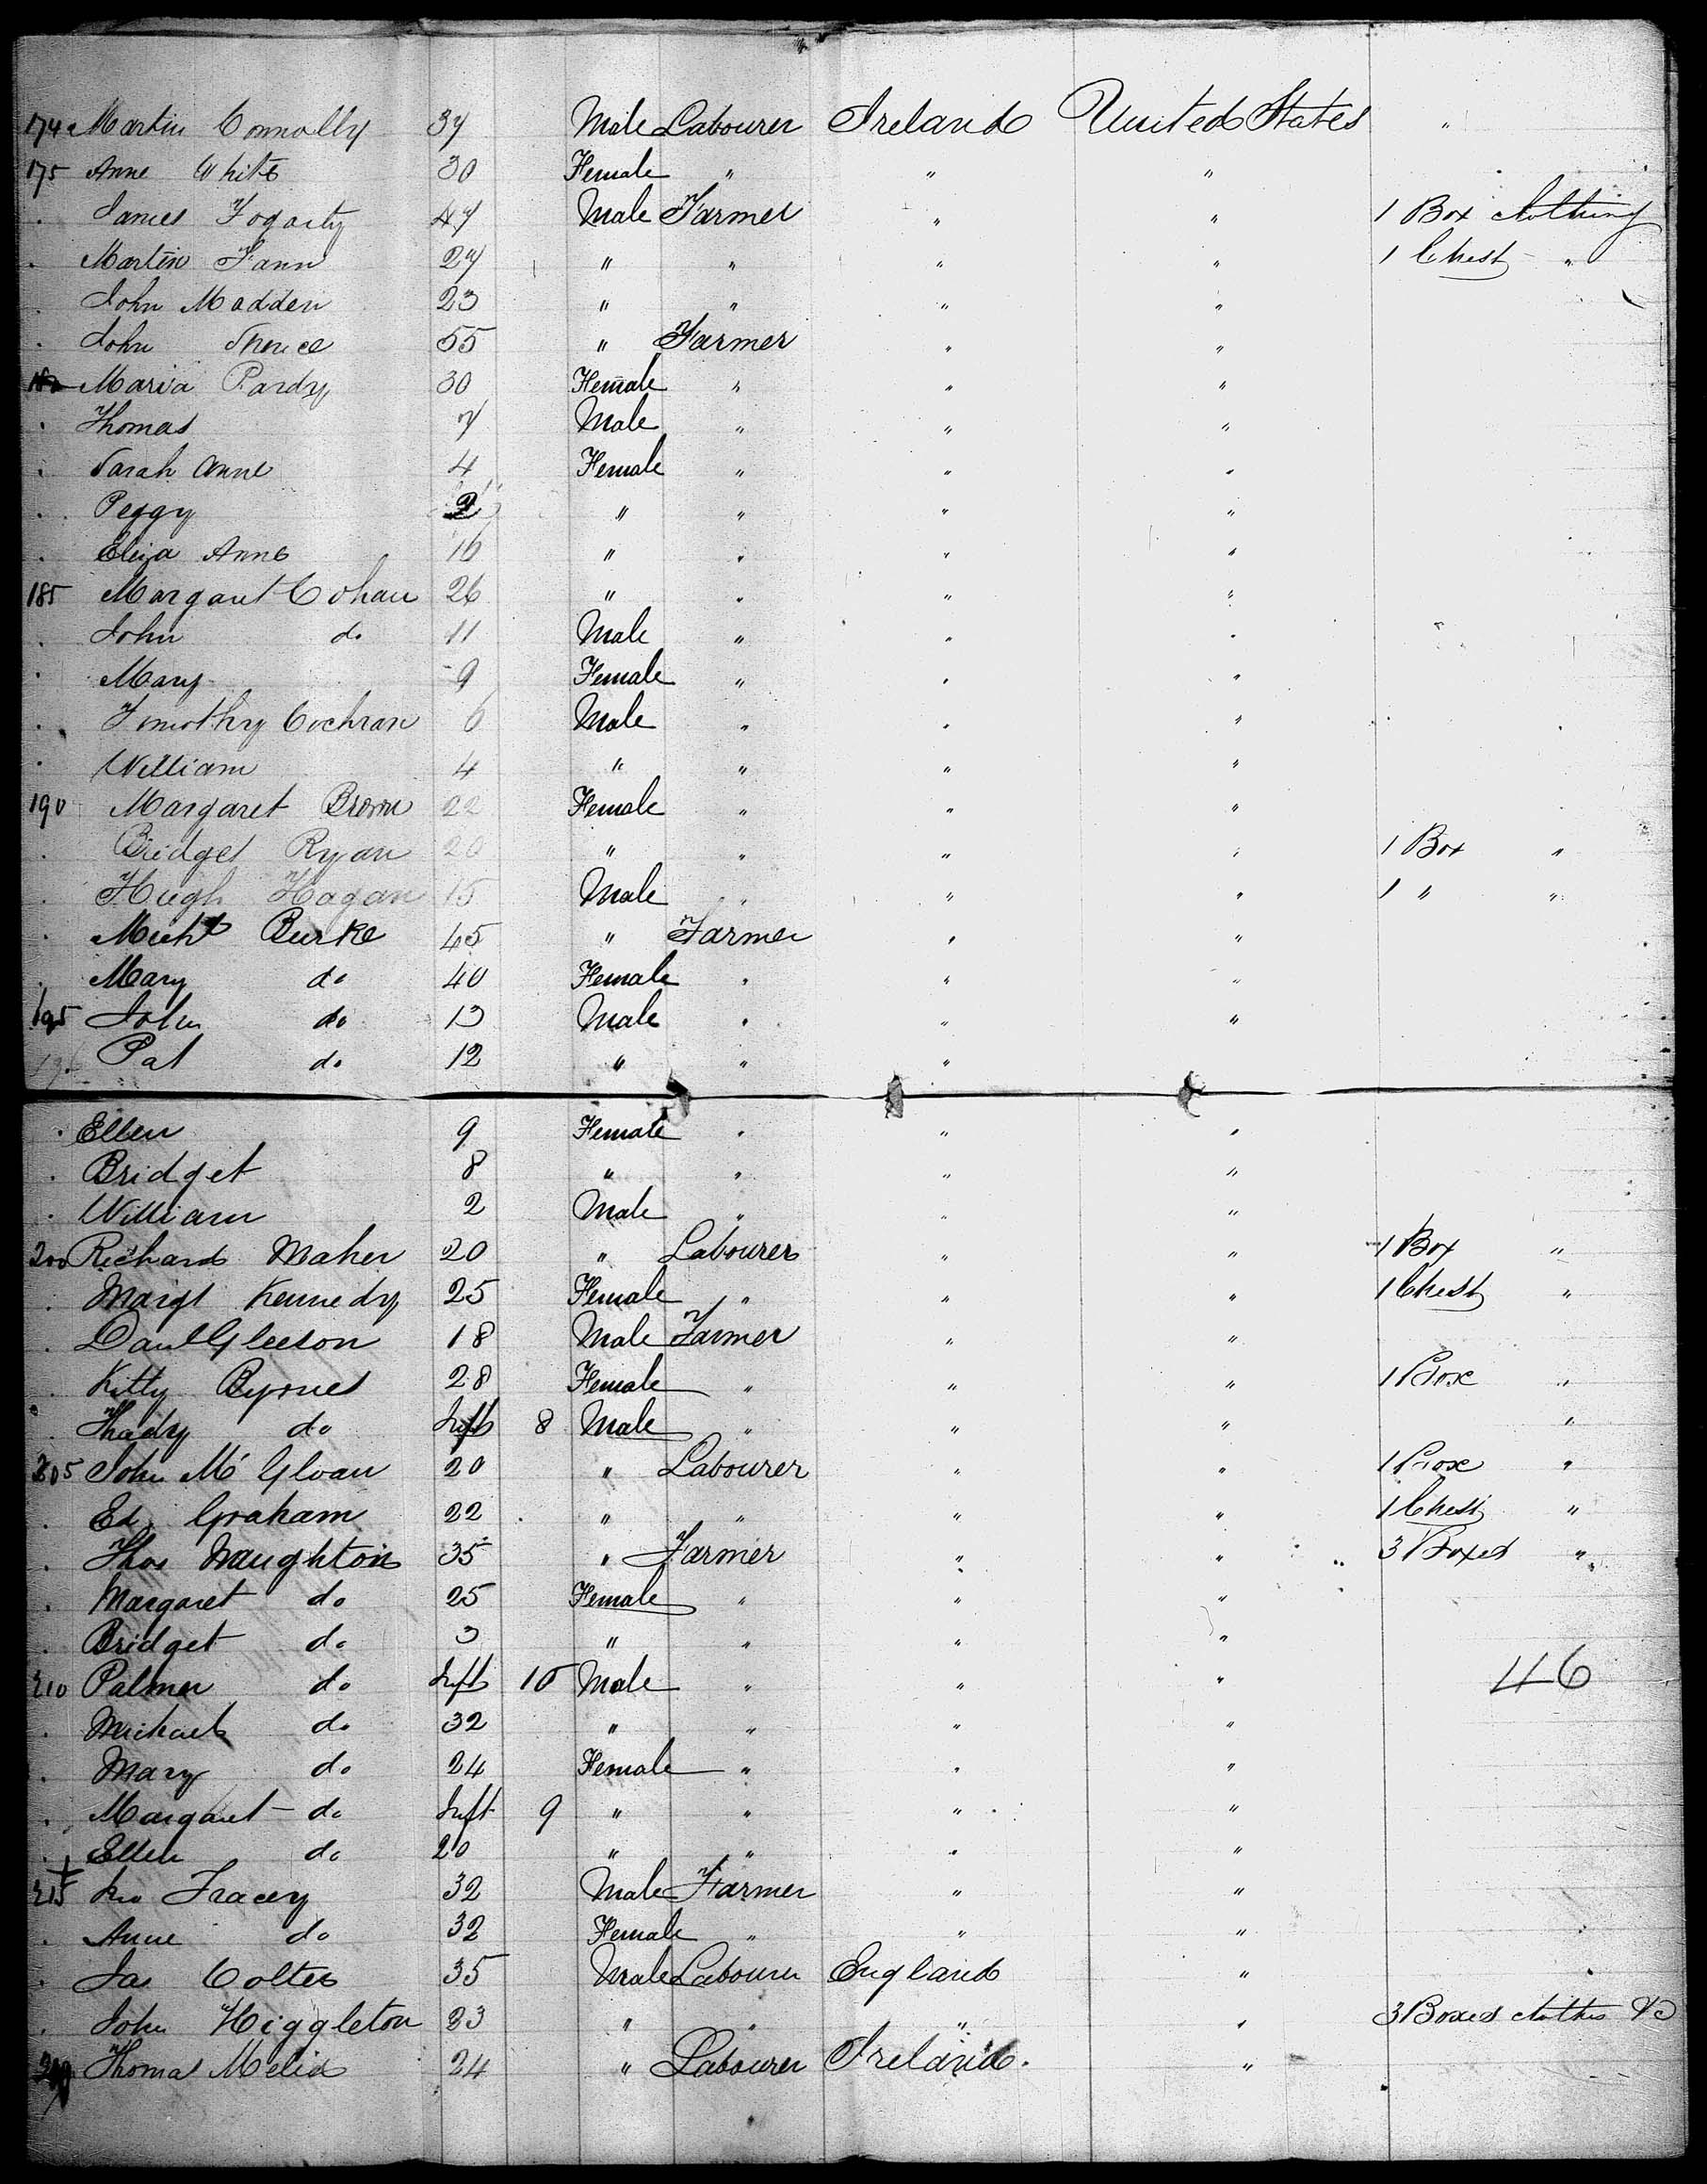 174 Martin Connolly 37 Male Labourer Ireland United States "
175 Anne White 30 Female " " "
James Fogarty 47 Male Farmer " " 1 Box Clothing
Martin Fann 27 " " " " 1 Chest "
John Madden 23 " " " "
John 55 " Farmer " "
Maria Pardy 30 Female " " "
Thomas 7 Male " " "
Sarah Anne 4 Female " " "
Peggy 2 " " " "
Eliza Anne 16 " " " "
185 Margaret Cohan 26 " " " "
John do 11 Male " " "
Mary 9 Female " " "
Timothy Cochran 6 Male " " "
William 4 " " " "
190 Margaret Brown 22 Female " " "
Bridget Ryan 20 " " " " 1 Box "
Hugh Hagan 15 Male " " " 1 " "
Michl Burke 45 " Farmer " "
Mary do 40 Female " " "
195 John do 13 Male " " "
196 Pat do 12 " " "
Ellen 9 Female " " "
Bridget 8 " " " "
William 2 Male " " "
200 Richard Maher 20 " Labourer " " 1 Box "
Margt Kennedy 25 Female " " " 1 Chest "
Danl Gleeson 18 Male Farmer " "
Kitty Byrnes 28 Female " " " 1 Box "
Thady do Inft 8 Male " " " "
205 John McGloan 20 " Labourer " " 1 Box "
Ed. Graham 22 " " " " 1 Chest "
Thos Naughton 35 " Farmer " " 3 Boxes "
Margaret do 25 Female " " "
Bridget do 3 " " " "
210 Palmer do Inft 10 Male " " " 46
Michael do 32 " " " "
Mary do 24 Female " " "
Margaret do Inft 9 " " " "
Ellen do 20 " " " "
215 Tracey 32 Male Farmer " "
Anne do 32 Female " " "
Jas Coltes 35 Male Labourer England "
John Higgleton 23 " " " " 3 Boxes clothes &c
Thomas Melia 24 " Labourer Ireland. "